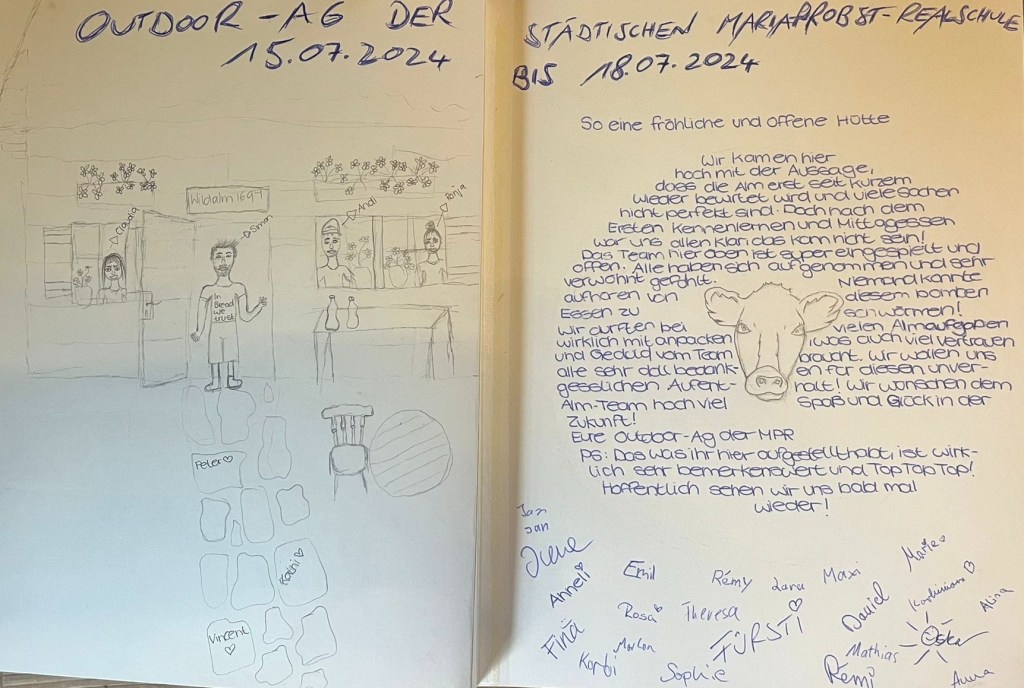 OUTDOOR-AG DER
15.07.2024
Wildalm 1697
Claudia
Simon
Andi
Ronja
In
Bread
we
trust
Peter
Kathi
Vincent
STÄDTISCHEN MARIAPROBST-REALSCHULE
BIS 18.07.2024
So eine fröhliche und offene Hütte
Wir kamen hier
hoch mit der Aussage,
dass die Alm erst seit kurzem
wieder bewirtet wird und viele Sachen
nicht perfekt sind. Doch nach dem
Ersten Kennenlernen und Mittagessen
war uns allen klar: das kann nicht sein!
Das Team hier oben ist super eingespielt und
offen. Alle haben sich aufgenommen und sehr
verwöhnt gefühlt. Niemand konnte
aufhören von diesem bomben
Essen zu schwärmen!
Wir durften bei vielen Almaufgaben
wirklich mit anpacken, was auch viel vertrauen
und Geduld vom Team braucht. Wir wollen uns
alle sehr doll bedank- en für diesen unver-
gesslichen Aufent- halt! Wir wünschen dem
Alm-Team noch viel Spaß und Glück in der
Zukunft!
Eure Outdoor-Ag der MPR
PS: Das was ihr hier aufgestellt habt, ist wirk-
lich sehr bemerkenswert und Top Top Top!
Hoffentlich sehen wir uns bald mal
wieder!
Jan
Jan
Irene
Anneli
Emil
Rémy
Lara
Maxi
Marie
Rosa
Theresa
FÜRSTI
David
Korbinian
Alina
Fina
Korbi
Marlon
Sophie
Mathias
Oskar
Rémi
Anna